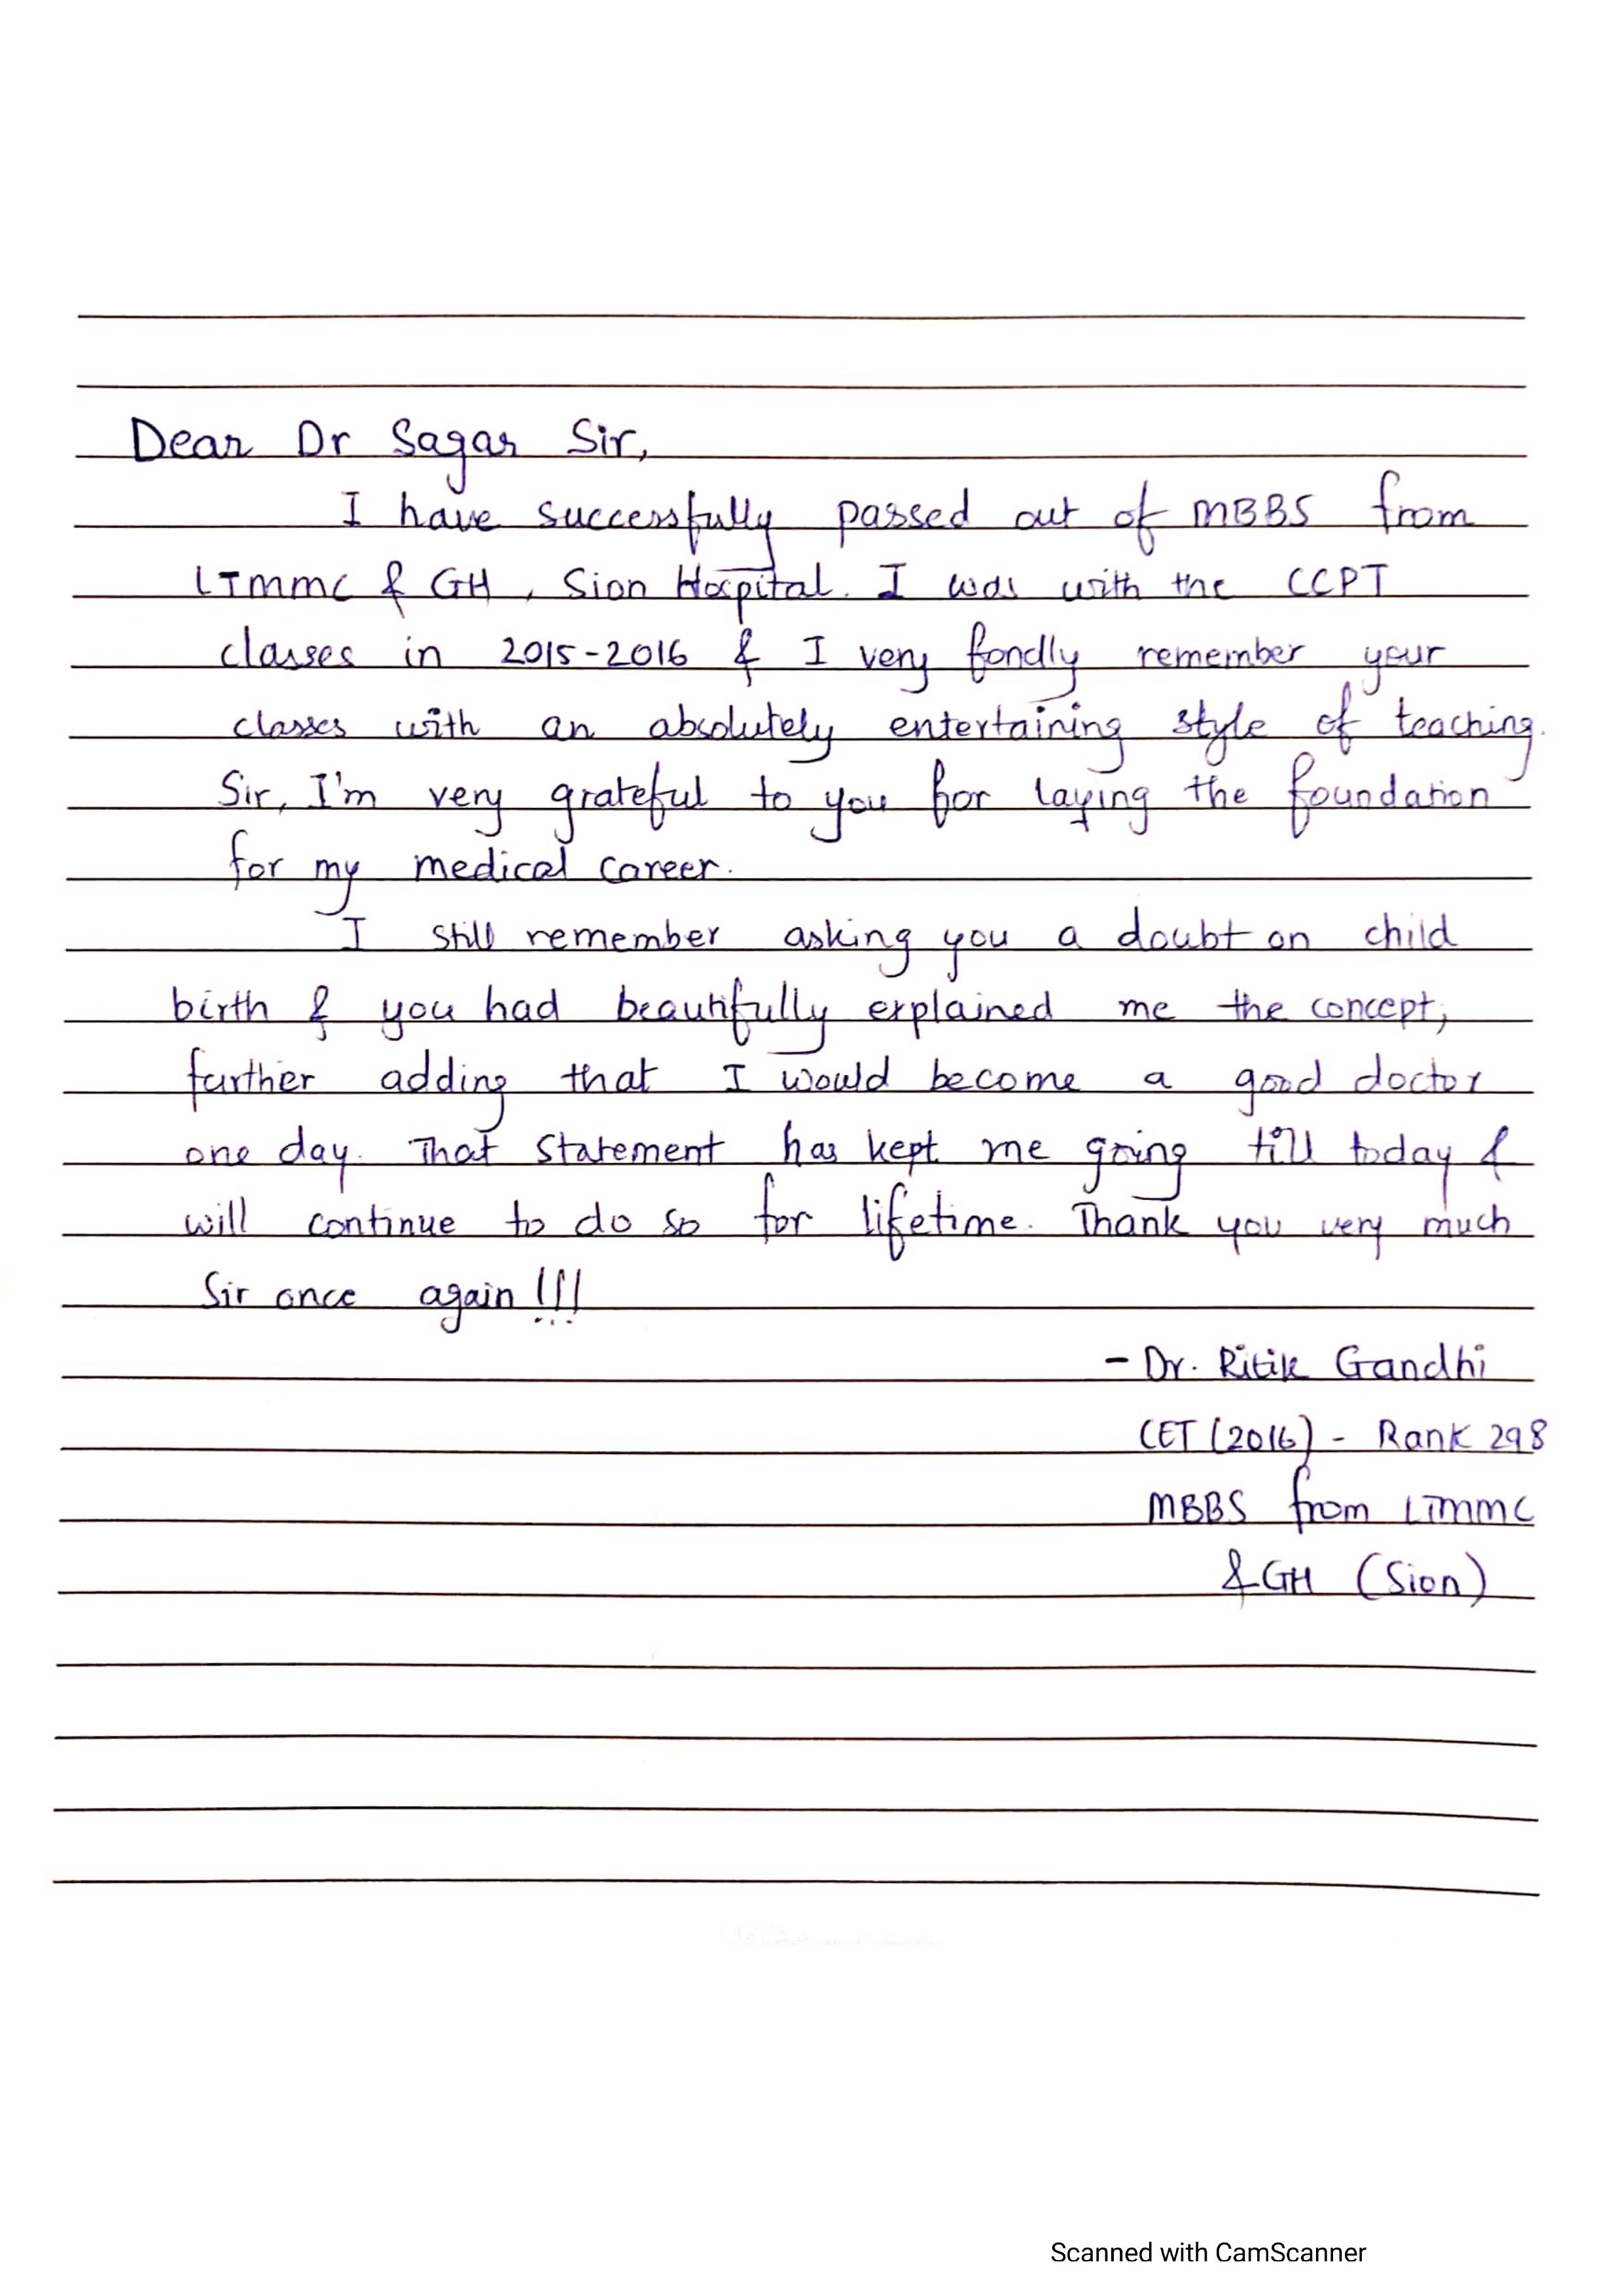 Dear Dr Sagar Sir,
I have successfully passed out of MBBS from
LTMMC & GH, Sion Hospital. I was with the CCPT
classes in 2015-2016 & I very fondly remember your
classes with an absolutely entertaining style of teaching.
Sir, I'm very grateful to you for laying the foundation
for my medical career.
I still remember asking you a doubt on child
birth & you had beautifully explained me the concept,
further adding that I would become a good doctor
one day. That statement has kept me going till today &
will continue to do so for lifetime. Thank you very much
Sir once again!!!
- Dr. Ritik Gandhi
CET (2016) - Rank 298
MBBS from LTMMC
& GH (Sion)
Scanned with CamScanner